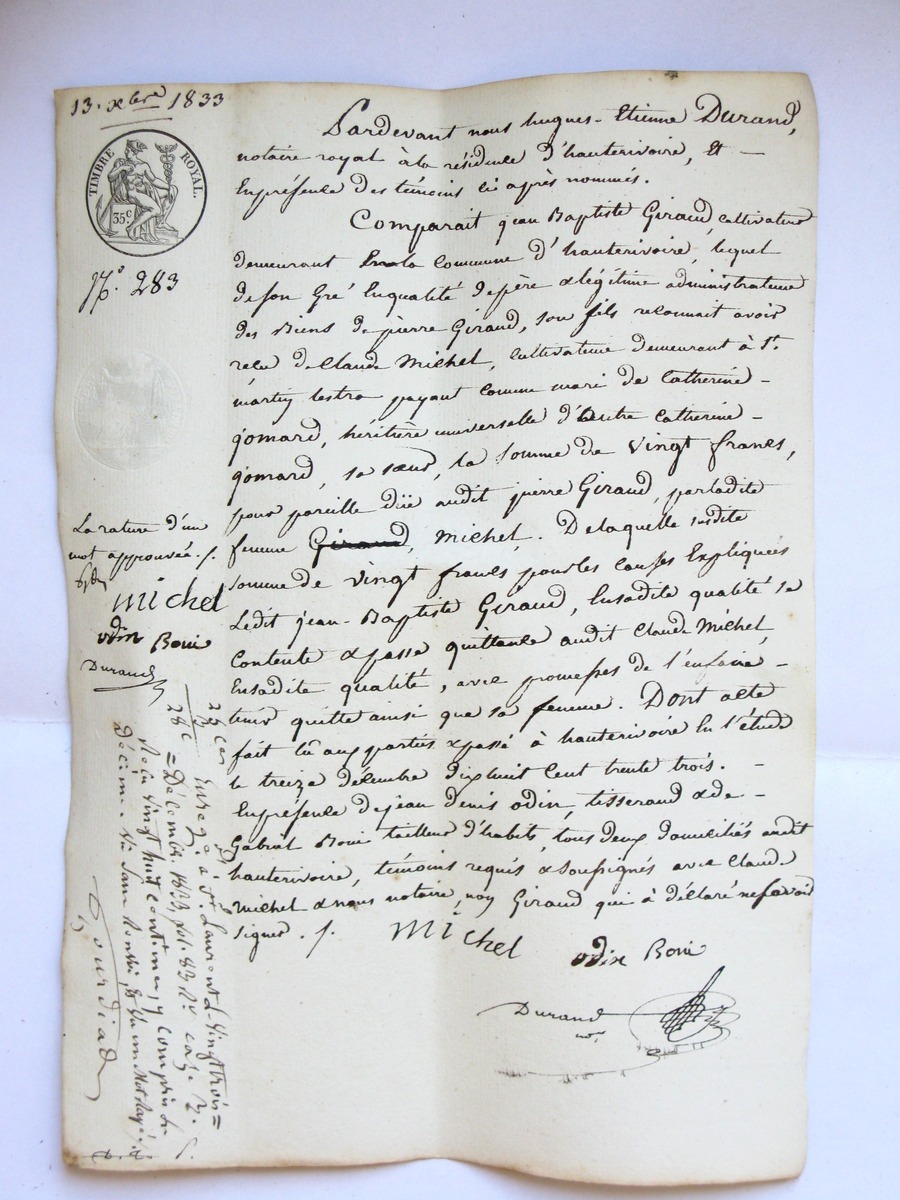 13. xbre 1833
TIMBRE ROYAL.
35c.
No. 283
Pardevant nous hugues-Etienne Durand,
notaire royal à la résidence d'hauterivoire, Et —
En présence des témoins ci après nommés.
Comparait jean Baptiste Giraud, cultivateur
demeurant En la Commune d'hauterivoire, lequel
de son Gré En qualité de père & légitime administrateur
des Biens de pierre Giraud, son fils reconnait avoir
reçu de Claude Michel, cultivateur demeurant à St.
martin lestra payant comme mari de Catherine —
jomard, héritière universelle d'Autre Catherine —
jomard, sa sœur, la somme de vingt francs,
pour pareille düe audit pierre Giraud, par ladite
femme Giraud, Michel. De laquelle susdite
somme de vingt francs pour les causes Expliquées
Ledit jean-Baptiste Giraud, En sadite qualité se
Contente & passe quittance audit Claude Michel,
En sadite qualité, avec promesse de l'en faire —
tenir quitte ainsi que sa femme. Dont acte
fait lû aux parties & passé à hauterivoire En l'étude
le treize décembre dix huit cent trente trois. —
En présence de jean denis odin, tisserand & de —
Gabriel Boni tailleur d'habits, tous deux domiciliés audit
hauterivoire, témoins requis & soussignés avec Claude
Michel & nous notaire, non Giraud qui à déclaré ne savoir
signer. /.
Michel
odin Boni
Durand
nre.
La rature d'un
mot approuvée. /.
Michel
odin Boni
Durand
25 c
3
28 c
Enreg. à St. Laurent le vingt trois =
= Décembre 1833, vol. 83 Ro. case 7.
Reçu vingt huit centimes, y compris le
Décime